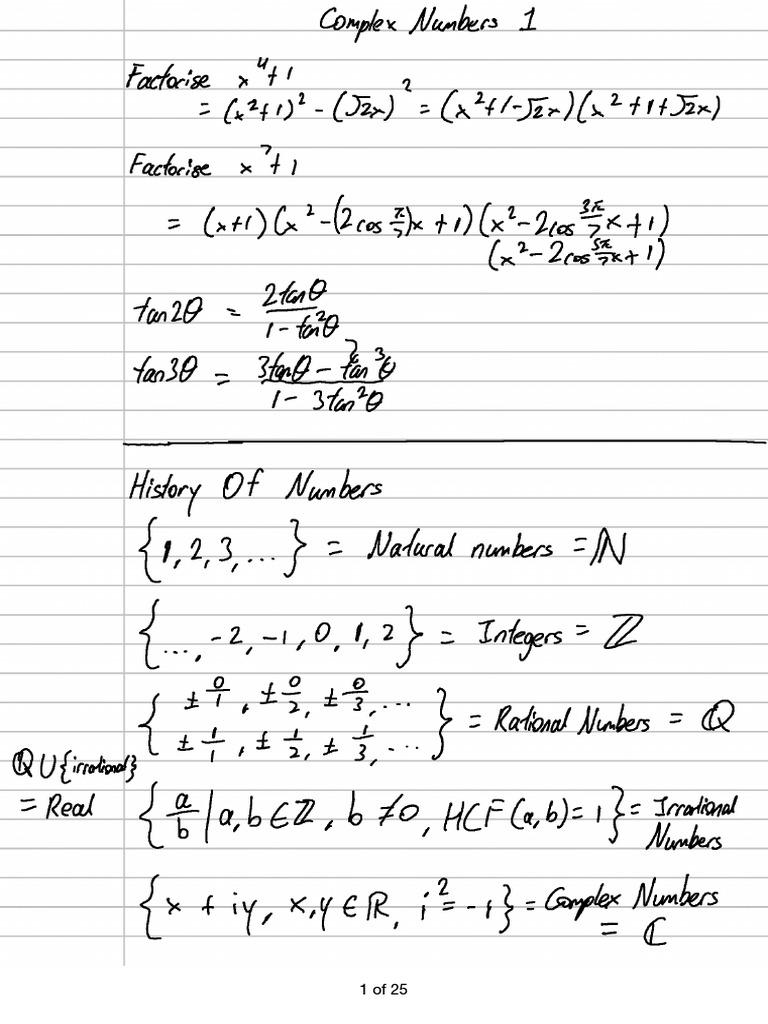 Complex Numbers 1
Factorise x⁴+1
= (x²+1)² - (√2x)² = (x²+1-√2x)(x²+1+√2x)
Factorise x⁷+1
= (x+1)(x²-(2cos π/7)x+1)(x²-2cos 3π/7 x+1)
(x²-2cos 5π/7 x+1)
tan2θ = 2tanθ / 1-tan²θ
tan3θ = 3tanθ - tan³θ / 1-3tan²θ
History Of Numbers
{1,2,3,...} = Natural numbers = ℕ
{..., -2, -1, 0, 1, 2} = Integers = ℤ
{± 0/1, ± 0/2, ± 0/3, ...
± 1/1, ± 1/2, ± 1/3, ...} = Rational Numbers = ℚ
ℚ∪{irrational}
= Real
{a/b | a,b∈ℤ, b≠0, HCF(a,b)=1} = Irrational
Numbers
{x + iy, x,y∈ℝ, i²=-1} = Complex Numbers
= ℂ
1 of 25